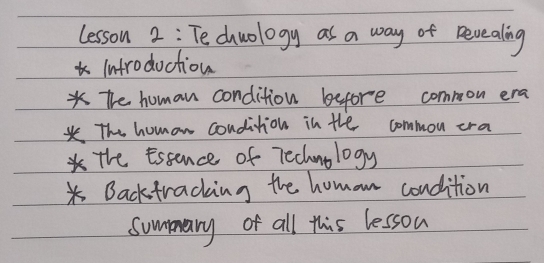 Lesson 2 : Technology as a way of Revealing
* Introduction
* The human condition before common era
* The human condition in the common era
* The Essence of Technology
* Backtracking the human condition
Summary of all this lesson